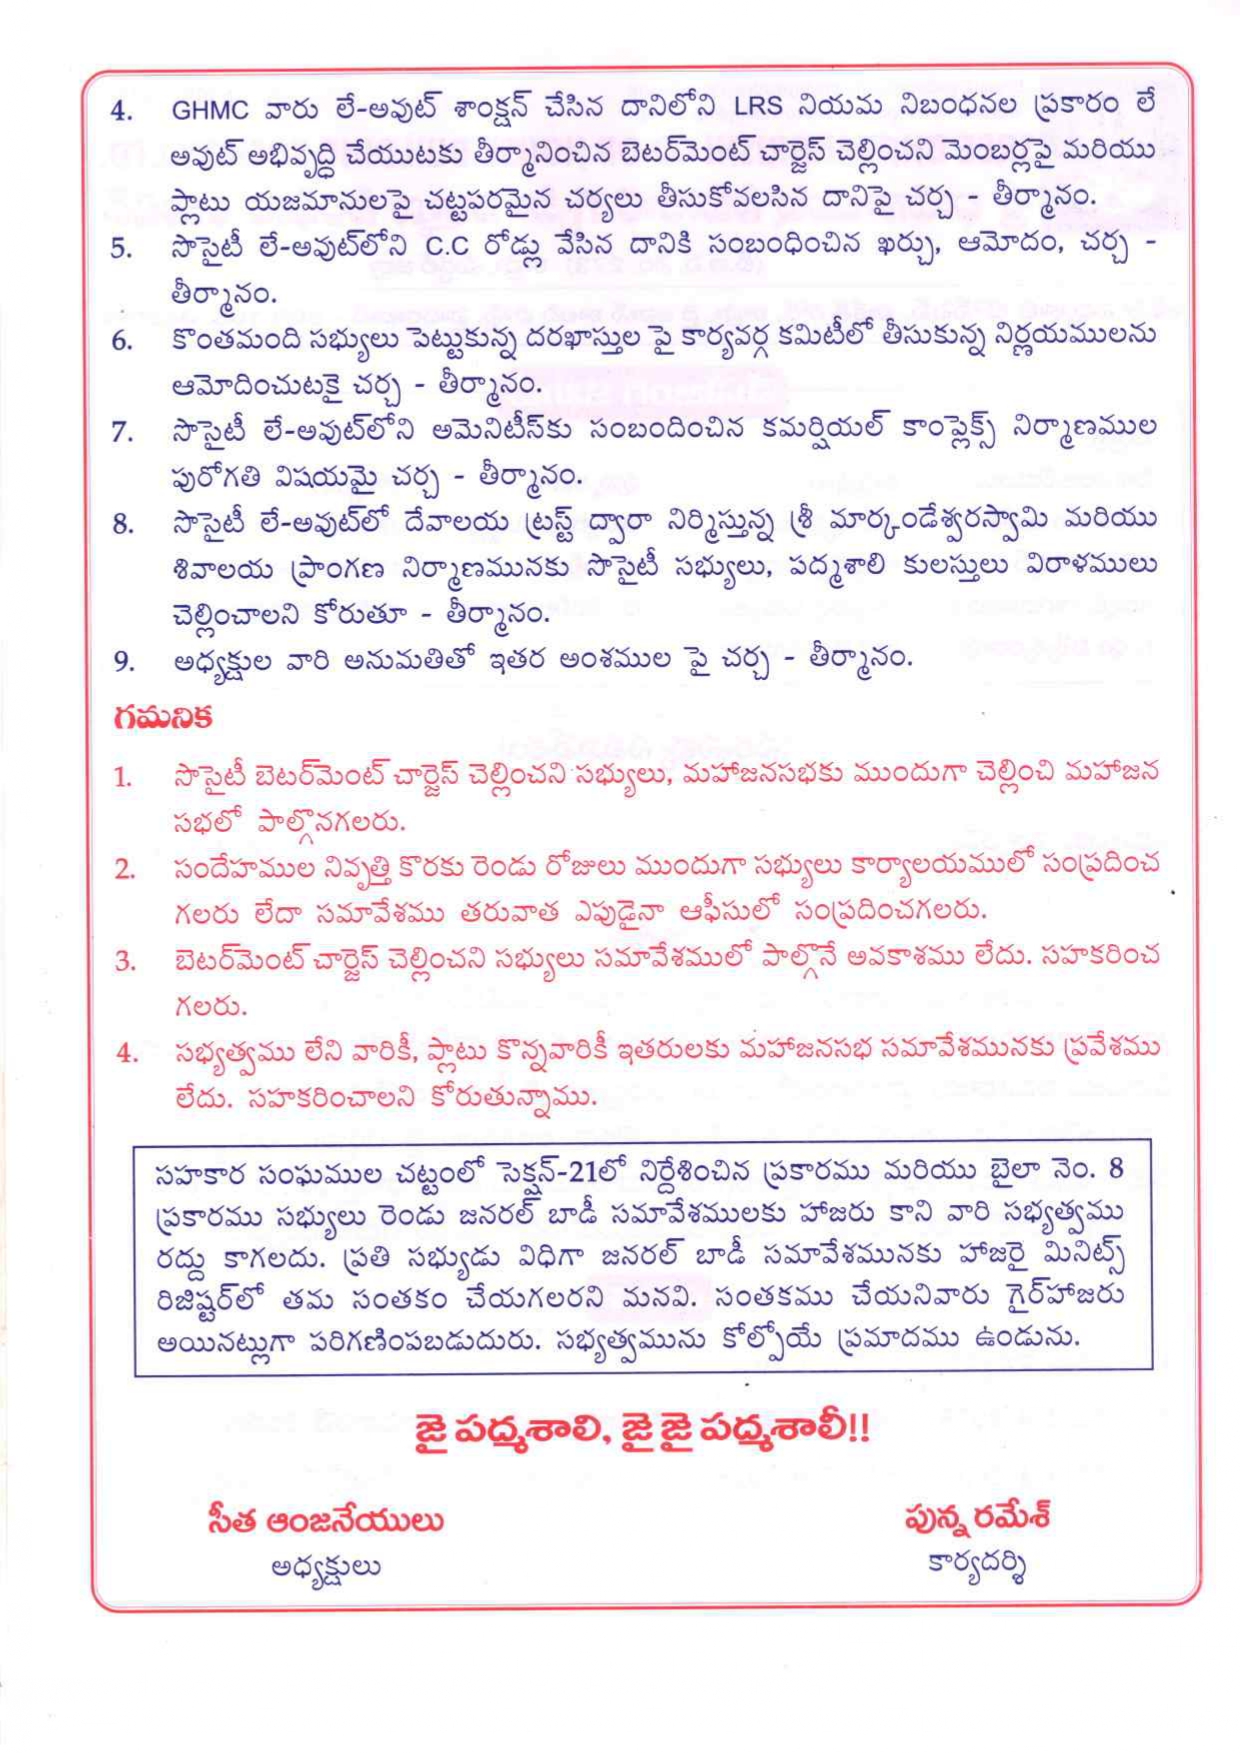 4. GHMC వారు లే-అవుట్ శాంక్షన్ చేసిన దానిలోని LRS నియమ నిబంధనల ప్రకారం లే
అవుట్ అభివృద్ధి చేయుటకు తీర్మానించిన బెటర్‌మెంట్ చార్జెస్ చెల్లించని మెంబర్లపై మరియు
ప్లాటు యజమానులపై చట్టపరమైన చర్యలు తీసుకోవలసిన దానిపై చర్చ - తీర్మానం.
5. సొసైటీ లే-అవుట్‌లోని C.C రోడ్లు వేసిన దానికి సంబంధించిన ఖర్చు, ఆమోదం, చర్చ -
తీర్మానం.
6. కొంతమంది సభ్యులు పెట్టుకున్న దరఖాస్తుల పై కార్యవర్గ కమిటీలో తీసుకున్న నిర్ణయములను
ఆమోదించుటకై చర్చ - తీర్మానం.
7. సొసైటీ లే-అవుట్‌లోని అమెనిటీస్‌కు సంబందించిన కమర్షియల్ కాంప్లెక్స్ నిర్మాణముల
పురోగతి విషయమై చర్చ - తీర్మానం.
8. సొసైటీ లే-అవుట్‌లో దేవాలయ ట్రస్ట్ ద్వారా నిర్మిస్తున్న శ్రీ మార్కండేశ్వరస్వామి మరియు
శివాలయ ప్రాంగణ నిర్మాణమునకు సొసైటీ సభ్యులు, పద్మశాలి కులస్తులు విరాళములు
చెల్లించాలని కోరుతూ - తీర్మానం.
9. అధ్యక్షుల వారి అనుమతితో ఇతర అంశముల పై చర్చ - తీర్మానం.
గమనిక
1. సొసైటీ బెటర్‌మెంట్ చార్జెస్ చెల్లించని సభ్యులు, మహాజనసభకు ముందుగా చెల్లించి మహాజన
సభలో పాల్గొనగలరు.
2. సందేహముల నివృత్తి కొరకు రెండు రోజులు ముందుగా సభ్యులు కార్యాలయములో సంప్రదించ
గలరు లేదా సమావేశము తరువాత ఎపుడైనా ఆఫీసులో సంప్రదించగలరు.
3. బెటర్‌మెంట్ చార్జెస్ చెల్లించని సభ్యులు సమావేశములో పాల్గొనే అవకాశము లేదు. సహకరించ
గలరు.
4. సభ్యత్వము లేని వారికీ, ప్లాటు కొన్నవారికీ ఇతరులకు మహాజనసభ సమావేశమునకు ప్రవేశము
లేదు. సహకరించాలని కోరుతున్నాము.
సహకార సంఘముల చట్టంలో సెక్షన్-21లో నిర్దేశించిన ప్రకారము మరియు బైలా నెం. 8
ప్రకారము సభ్యులు రెండు జనరల్ బాడీ సమావేశములకు హాజరు కాని వారి సభ్యత్వము
రద్దు కాగలదు. ప్రతి సభ్యుడు విధిగా జనరల్ బాడీ సమావేశమునకు హాజరై మినిట్స్
రిజిష్టర్‌లో తమ సంతకం చేయగలరని మనవి. సంతకము చేయనివారు గైర్‌హాజరు
అయినట్లుగా పరిగణింపబడుదురు. సభ్యత్వమును కోల్పోయే ప్రమాదము ఉండును.
జై పద్మశాలి, జై జై పద్మశాలీ!!
సీత ఆంజనేయులు పున్న రమేశ్
అధ్యక్షులు కార్యదర్శి